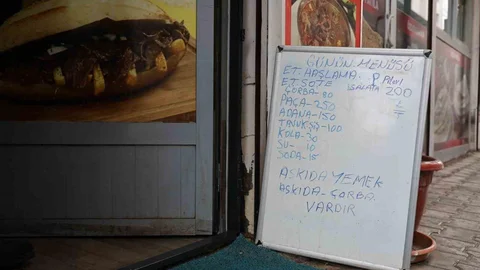 GÜNÜN MENÜSÜ
ET HAŞLAMA P. PİLAV
ET SOTE SALATA 200
ÇORBA-80
PAÇA-250
ADANA-150
TAVUK ŞİŞ-100
KOLA-30
SU-10
SODA-15
ASKIDA YEMEK
ASKIDA-ÇORBA
VARDIR